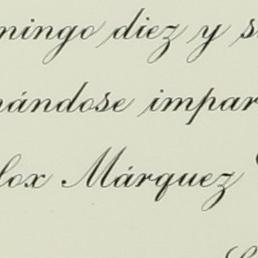 mingo diez y s
nándose impar
lox Márquez